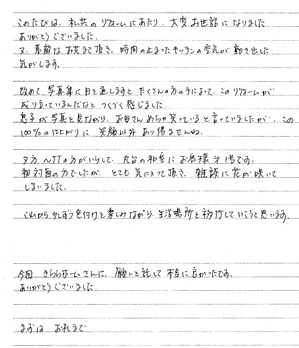 このたびは、私共のリフォームにあたり、大変お世話になりました
ありがとうございました。
又、素敵なお花まで頂き、時間の止まったキッチンの空気が動き出した
気がします。
改めて、写真集に目を通しますと たくさんの方の手によって、このリフォームが
成り立っているんだなと つくづく感じました。
息子が写真を見ながら、お母さん めちゃ笑っていると言っていましたが、この
100%の仕上がりに 笑顔以外あり得ませんね。
夕方
の方がいらして、
の和室に お客様
です。
初対面の方でしたが、とても 気に入って頂き、雑談に花が咲いて
しまいました。
これから少しずつ色付けを楽しみながら、生活場所を
していこうと思います。
今回、きららホームさんに、願いを託して 本当に良かったです。
ありがとうございました
まずは お礼まで